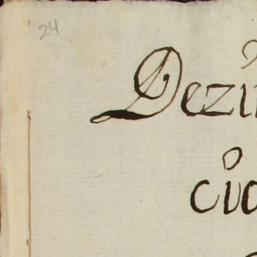 24
Dezi
cia